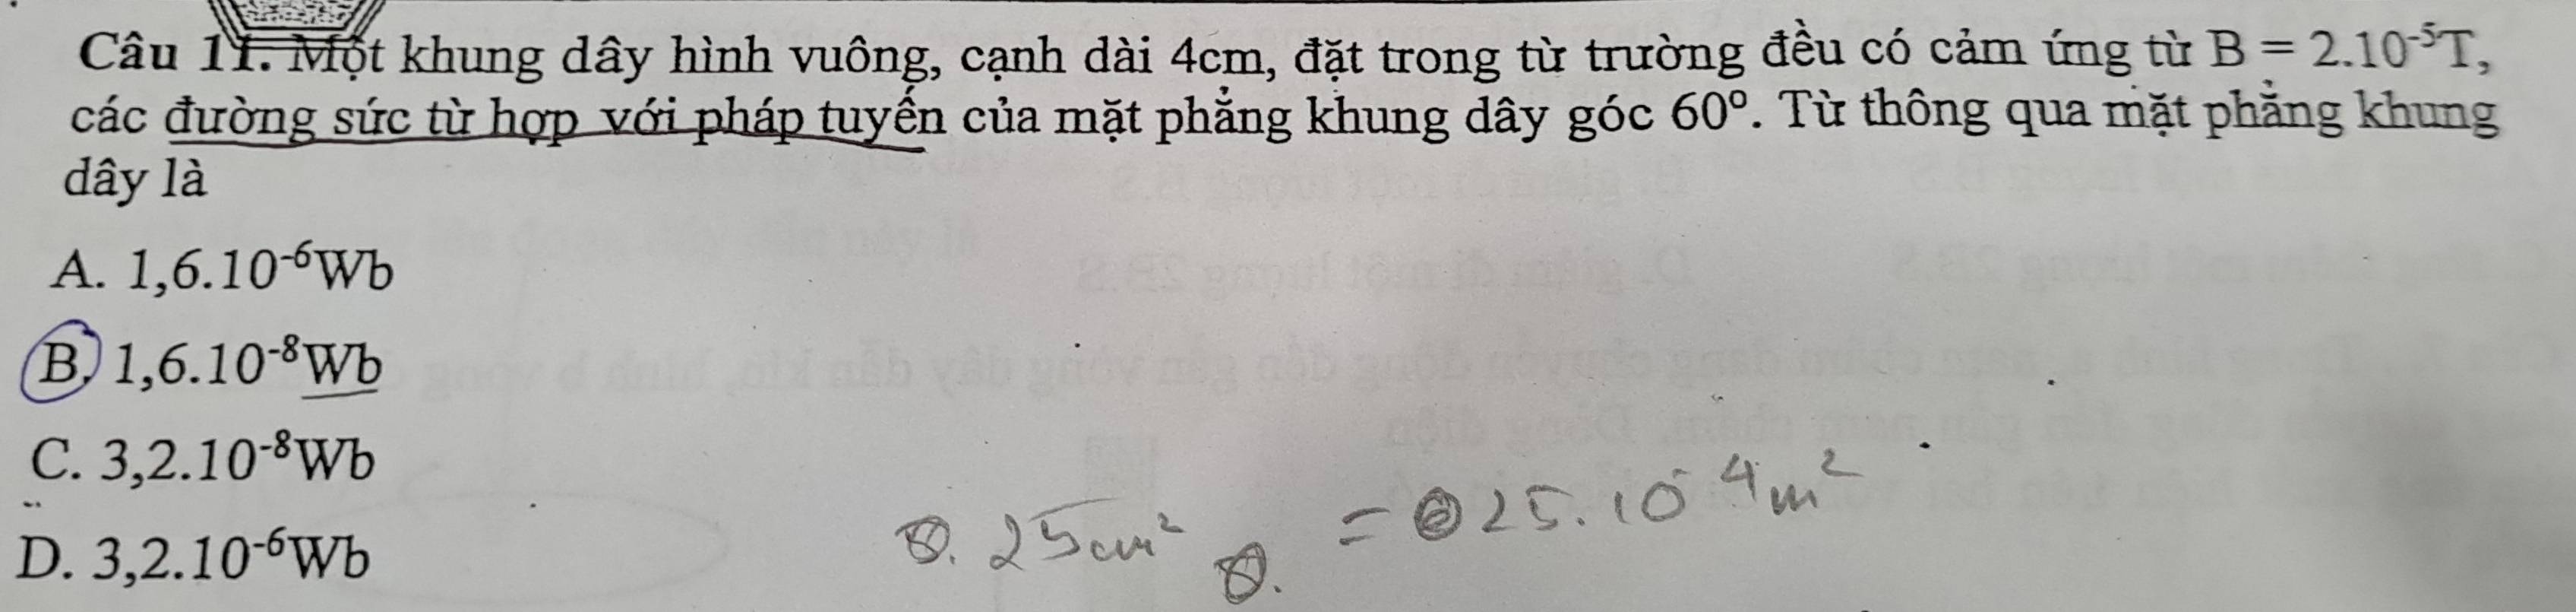 Câu 11. Một khung dây hình vuông, cạnh dài 4cm, đặt trong từ trường đều có cảm ứng từ B = 2.10⁻⁵T,
các đường sức từ hợp với pháp tuyến của mặt phẳng khung dây góc 60⁰. Từ thông qua mặt phẳng khung
dây là
A. 1,6.10⁻⁶Wb
B. 1,6.10⁻⁸Wb
C. 3,2.10⁻⁸Wb
D. 3,2.10⁻⁶Wb
25cm² = 25.10⁻⁴m²